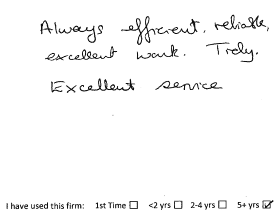 Always efficient, reliable,
excellent work. Tidy.
Excellent service
I have used this firm: 1st Time ☐ <2 yrs ☐ 2-4 yrs ☐ 5+ yrs ☑